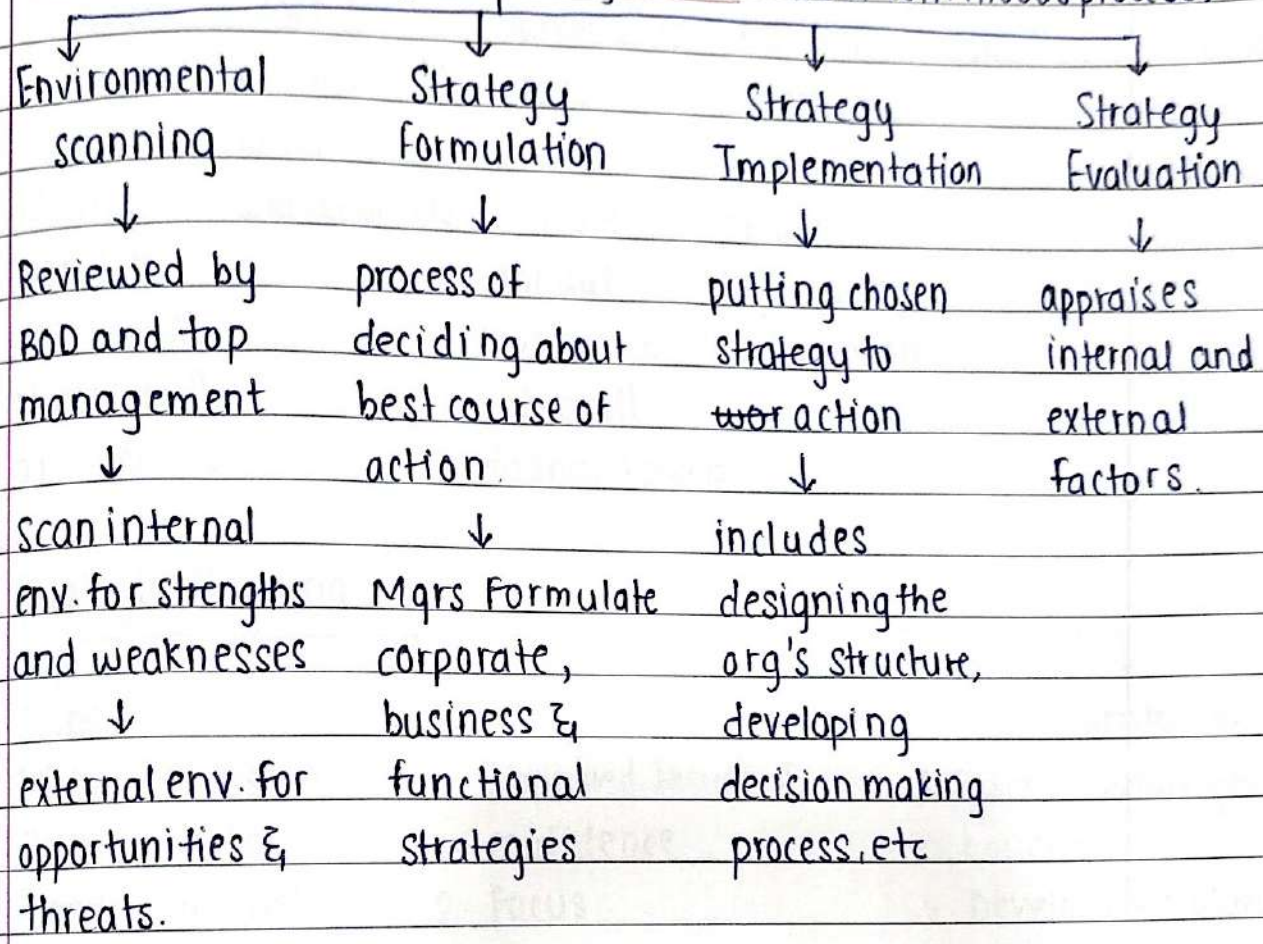 Environmental
scanning
Reviewed by
BOD and top
management
scan internal
env. for strengths
and weaknesses
external env. for
opportunities &
threats.
Strategy
Formulation
process of
deciding about
best course of
action.
Mgrs Formulate
corporate,
business &
functional
strategies
Strategy
Implementation
putting chosen
strategy to
wor action
includes
designing the
org's structure,
developing
decision making
process, etc
Strategy
Evaluation
appraises
internal and
external
factors.